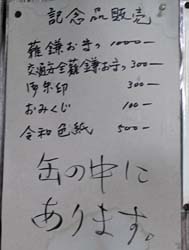 記念品販売
薙鎌お守 1000-
交通安全薙鎌お守 300-
御朱印 300-
おみくじ 100-
令和色紙 500-
缶の中に
あります。